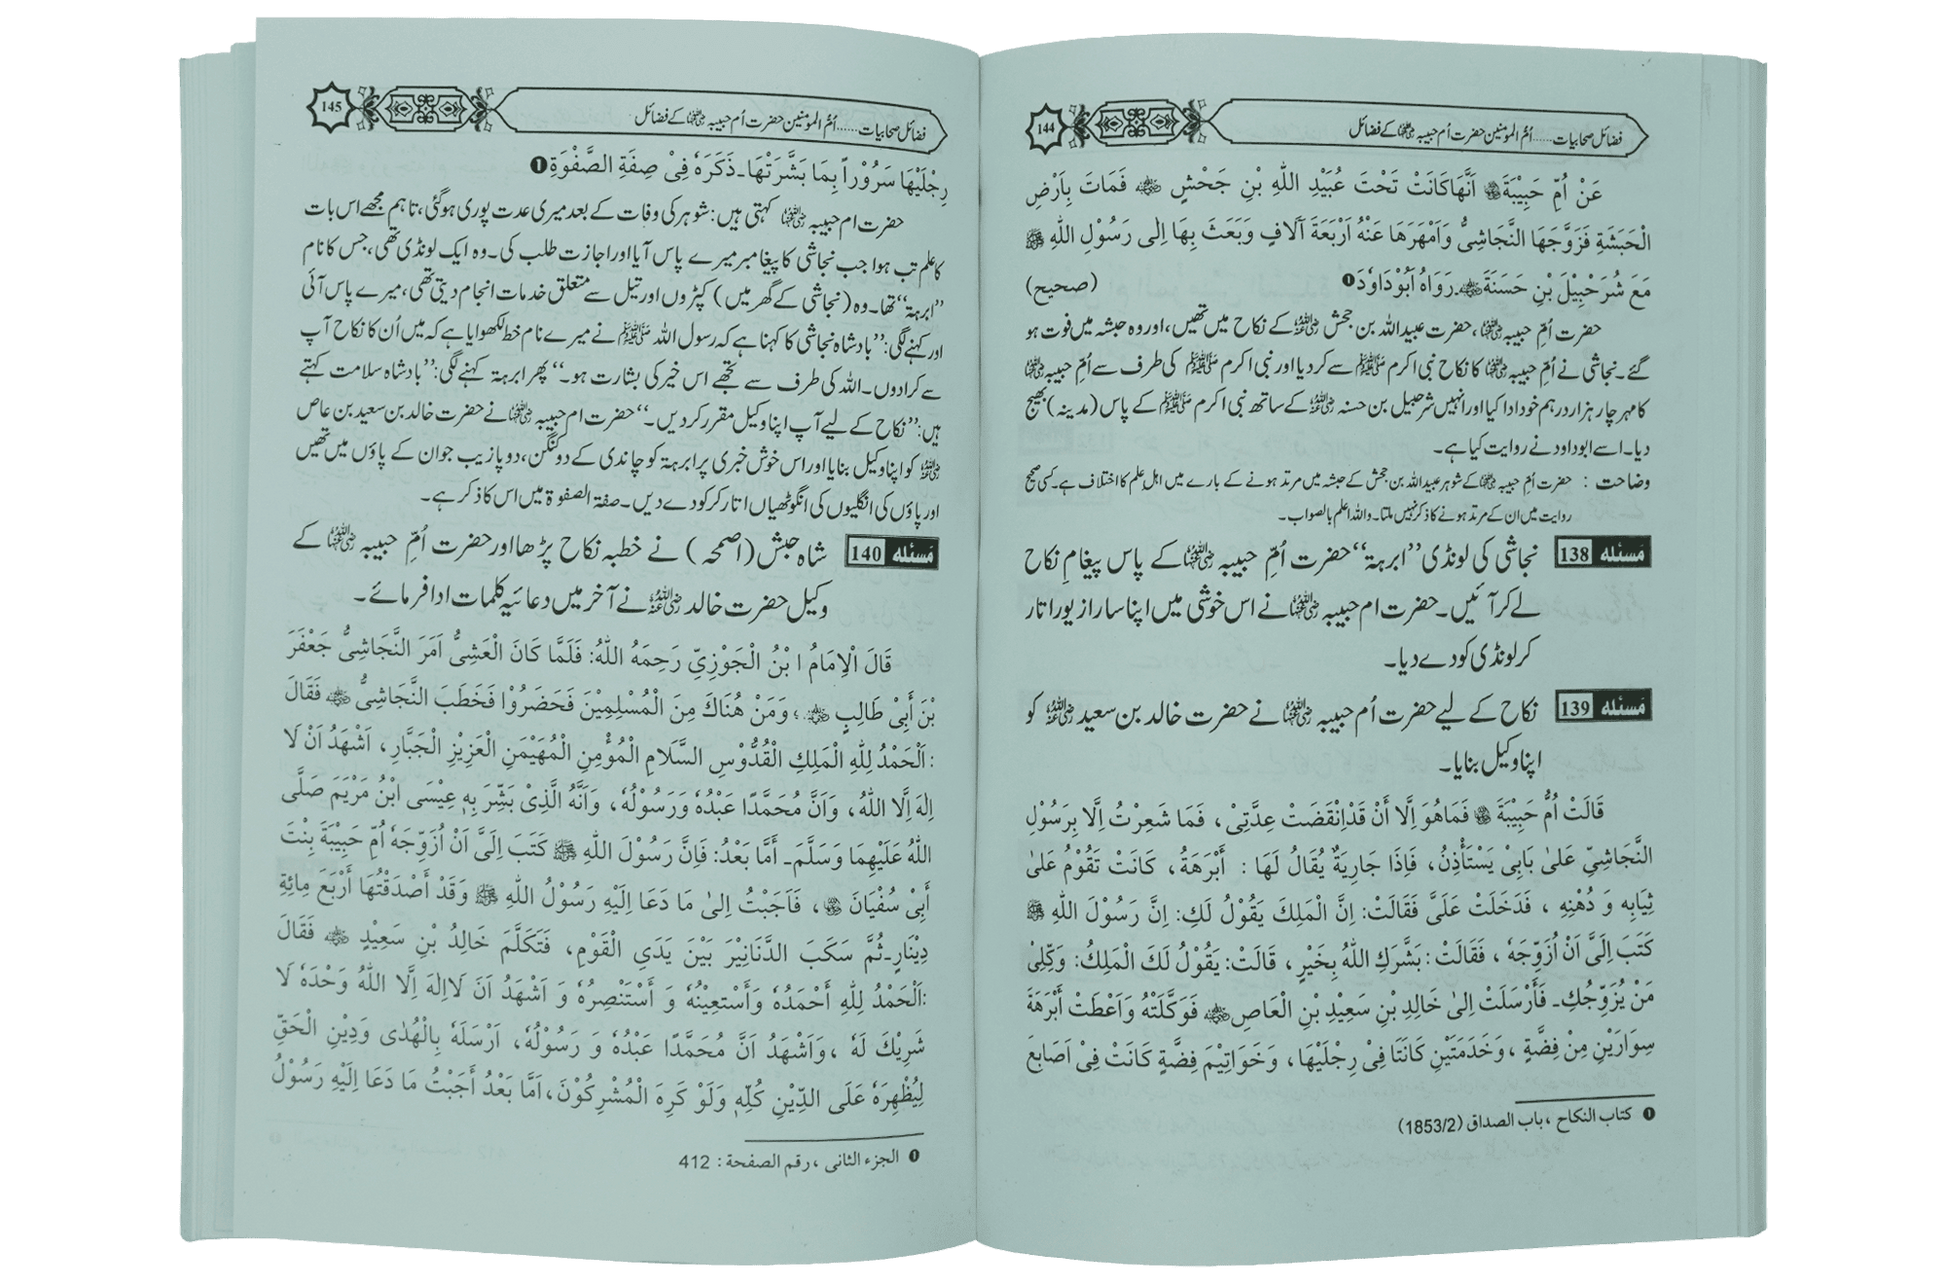 144
فضائل صحابیات......اُمّ المؤمنین حضرت اُم حبیبہ رضی اللہ عنہا کے فضائل
عَنْ اُمِّ حَبِیْبَةَ رضی اللہ عنہا اَنَّهَا كَانَتْ تَحْتَ عُبَيْدِ اللّٰهِ بْنِ جَحْشٍ رضی اللہ عنہ فَمَاتَ بِاَرْضِ
الْحَبَشَةِ فَزَوَّجَهَا النَّجَاشِیُّ وَاَمْهَرَهَا عَنْهُ اَرْبَعَةَ آلَافٍ وَبَعَثَ بِهَا اِلٰى رَسُوْلِ اللّٰهِ ﷺ
مَعَ شُرَحْبِيْلَ بْنِ حَسَنَةَ رضی اللہ عنہ۔ رَوَاهُ اَبُوْدَاوٗدَ ❶ (صحیح)
حضرت اُمِّ حبیبہ رضی اللہ عنہا، حضرت عبیداللہ بن جحش رضی اللہ عنہ کے نکاح میں تھیں، اور وہ حبشہ میں فوت ہو
گئے۔ نجاشی نے اُمِّ حبیبہ رضی اللہ عنہا کا نکاح نبی اکرم ﷺ سے کردیا اور نبی اکرم ﷺ کی طرف سے اُمِّ حبیبہ رضی اللہ عنہا
کا مہر چار ہزار درہم خود ادا کیا اور انہیں شرحبیل بن حسنہ رضی اللہ عنہ کے ساتھ نبی اکرم ﷺ کے پاس (مدینہ) بھیج
دیا۔ اسے ابوداود نے روایت کیا ہے۔
وضاحت : حضرت اُمِّ حبیبہ رضی اللہ عنہا کے شوہر عبیداللہ بن جحش کے حبشہ میں مرتد ہونے کے بارے میں اہلِ علم کا اختلاف ہے۔ کسی صحیح
روایت میں ان کے مرتد ہونے کا ذکر نہیں ملتا۔ واللہ اعلم بالصواب۔
مَسئله 138 نجاشی کی لونڈی ”ابرہۃ“ حضرت اُمِّ حبیبہ رضی اللہ عنہا کے پاس پیغامِ نکاح
لے کر آئیں۔ حضرت ام حبیبہ رضی اللہ عنہا نے اس خوشی میں اپنا سارا زیور اتار
کر لونڈی کو دے دیا۔
مَسئله 139 نکاح کے لیے حضرت اُم حبیبہ رضی اللہ عنہا نے حضرت خالد بن سعید رضی اللہ عنہ کو
اپنا وکیل بنایا۔
قَالَتْ اُمُّ حَبِيْبَةَ رضی اللہ عنہا فَمَاهُوَ اِلَّا أَنْ قَدْاِنْقَضَتْ عِدَّتِیْ، فَمَا شَعِرْتُ اِلَّا بِرَسُوْلِ
النَّجَاشِیِّ عَلیٰ بَابِیْ يَسْتَأْذِنُ، فَاِذَا جَارِيَةٌ يُقَالُ لَهَا : أَبْرَهَةُ، كَانَتْ تَقُوْمُ عَلیٰ
ثِيَابِه وَ دُهْنِهِ ، فَدَخَلَتْ عَلَیَّ فَقَالَتْ: اِنَّ الْمَلِكَ يَقُوْلُ لَكِ: اِنَّ رَسُوْلَ اللّٰهِ ﷺ
كَتَبَ اِلَیَّ اَنْ اُزَوِّجَهٗ ، فَقَالَتْ: بَشَّرَكِ اللّٰهُ بِخَيْرٍ، قَالَتْ: يَقُوْلُ لَكَ الْمَلِكُ: وَكِّلِیْ
مَنْ يُزَوِّجُكِ۔ فَأَرْسَلَتْ اِلیٰ خَالِدِ بْنِ سَعِيْدِ بْنِ الْعَاصِ رضی اللہ عنہ فَوَكَّلَتْهُ وَاَعْطَتْ أَبْرَهَةَ
سِوَارَيْنِ مِنْ فِضَّةٍ ، وَخَدَمَتَيْنِ كَانَتَا فِیْ رِجْلَيْهَا، وَخَوَاتِيْمَ فِضَّةٍ كَانَتْ فِیْ اَصَابِعَ
❶ كتاب النكاح ، باب الصداق (1853/2)
145
فضائل صحابیات......اُمّ المؤمنین حضرت اُم حبیبہ رضی اللہ عنہا کے فضائل
رِجْلَيْهَا سَرُوْراً بِمَا بَشَّرَتْهَا۔ ذَكَرَهٗ فِیْ صِفَةِ الصَّفْوَةِ ❶
حضرت ام حبیبہ رضی اللہ عنہا کہتی ہیں: شوہر کی وفات کے بعد میری عدت پوری ہوگئی، تاہم مجھے اس بات
کا علم تب ہوا جب نجاشی کا پیغامبر میرے پاس آیا اور اجازت طلب کی۔ وہ ایک لونڈی تھی، جس کا نام
”ابرہۃ“ تھا۔ وہ (نجاشی کے گھر میں) کپڑوں اور تیل سے متعلق خدمات انجام دیتی تھی، میرے پاس آئی
اور کہنے لگی: ”بادشاہ نجاشی کا کہنا ہے کہ رسول اللہ ﷺ نے میرے نام خط لکھوایا ہے کہ میں اُن کا نکاح آپ
سے کرادوں۔ اللہ کی طرف سے تجھے اس خیر کی بشارت ہو۔“ پھر ابرہۃ کہنے لگی: ”بادشاہ سلامت کہتے
ہیں: ”نکاح کے لیے آپ اپنا وکیل مقرر کردیں۔“ حضرت ام حبیبہ رضی اللہ عنہا نے حضرت خالد بن سعید بن عاص
رضی اللہ عنہ کو اپنا وکیل بنایا اور اس خوش خبری پر ابرہۃ کو چاندی کے دو کنگن، دو پازیب جو ان کے پاؤں میں تھیں
اور پاؤں کی انگلیوں کی انگوٹھیاں اتار کر کو دے دیں۔ صفۃ الصفوۃ میں اس کا ذکر ہے۔
مَسئله 140 شاہ حبش (اصحمہ) نے خطبہ نکاح پڑھا اور حضرت اُمِّ حبیبہ رضی اللہ عنہا کے
وکیل حضرت خالد رضی اللہ عنہ نے آخر میں دعائیہ کلمات ادا فرمائے۔
قَالَ الْاِمَامُ ابْنُ الْجَوْزِیِّ رَحِمَهُ اللّٰهُ: فَلَمَّا كَانَ الْعَشِیُّ اَمَرَ النَّجَاشِیُّ جَعْفَرَ
بْنَ أَبِیْ طَالِبٍ رضی اللہ عنہ، وَمَنْ هُنَاكَ مِنَ الْمُسْلِمِيْنَ فَحَضَرُوْا فَخَطَبَ النَّجَاشِیُّ رضی اللہ عنہ فَقَالَ
: اَلْحَمْدُ لِلّٰهِ الْمَلِكِ الْقُدُّوْسِ السَّلَامِ الْمُؤْمِنِ الْمُهَيْمَنِ الْعَزِيْزِ الْجَبَّارِ، اَشْهَدُ اَنْ لَا
اِلٰهَ اِلَّا اللّٰهُ، وَاَنَّ مُحَمَّدًا عَبْدُهٗ وَرَسُوْلُهٗ، وَاَنَّهُ الَّذِیْ بَشَّرَ بِهٖ عِيْسَی ابْنُ مَرْيَمَ صَلَّی
اللّٰهُ عَلَيْهِمَا وَسَلَّمَ۔ أَمَّا بَعْدُ: فَاِنَّ رَسُوْلَ اللّٰهِ ﷺ كَتَبَ اِلَیَّ اَنْ اُزَوِّجَهٗ اُمَّ حَبِيْبَةَ بِنْتَ
أَبِیْ سُفْيَانَ رضی اللہ عنہ، فَاَجَبْتُ اِلیٰ مَا دَعَا اِلَيْهِ رَسُوْلُ اللّٰهِ ﷺ وَقَدْ أَصْدَقْتُهَا أَرْبَعَ مِائَةِ
دِيْنَارٍ۔ ثُمَّ سَكَبَ الدَّنَانِيْرَ بَيْنَ يَدَیِ الْقَوْمِ، فَتَكَلَّمَ خَالِدُ بْنِ سَعِيْدٍ رضی اللہ عنہ فَقَالَ
:اَلْحَمْدُ لِلّٰهِ أَحْمَدُهٗ وَأَسْتَعِيْنُهٗ وَ أَسْتَنْصِرُهٗ وَ اَشْهَدُ اَنَ لَااِلٰهَ اِلَّا اللّٰهُ وَحْدَهٗ لَا
شَرِيْكَ لَهٗ ، وَاَشْهَدُ اَنَّ مُحَمَّدًا عَبْدُهٗ وَ رَسُوْلُهٗ، اَرْسَلَهٗ بِالْهُدٰی وَدِيْنِ الْحَقِّ
لِيُظْهِرَهٗ عَلَی الدِّيْنِ كُلِّهٖ وَلَوْ كَرِهَ الْمُشْرِكُوْنَ، اَمَّا بَعْدُ أَجَبْتُ مَا دَعَا اِلَيْهِ رَسُوْلُ
❶ الجزء الثانی ، رقم الصفحة : 412